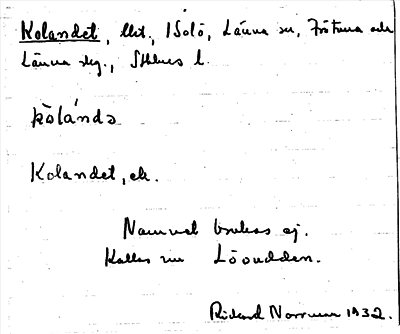 Kolandet, llet., Isolö, Länna sn, Frötuna och
Länna skg., Sthlms l.
kòlánda
Kolandet, ek.
Namnet brukas ej.
Kallas nu Lösudden.
Rickard Norrman 1932.